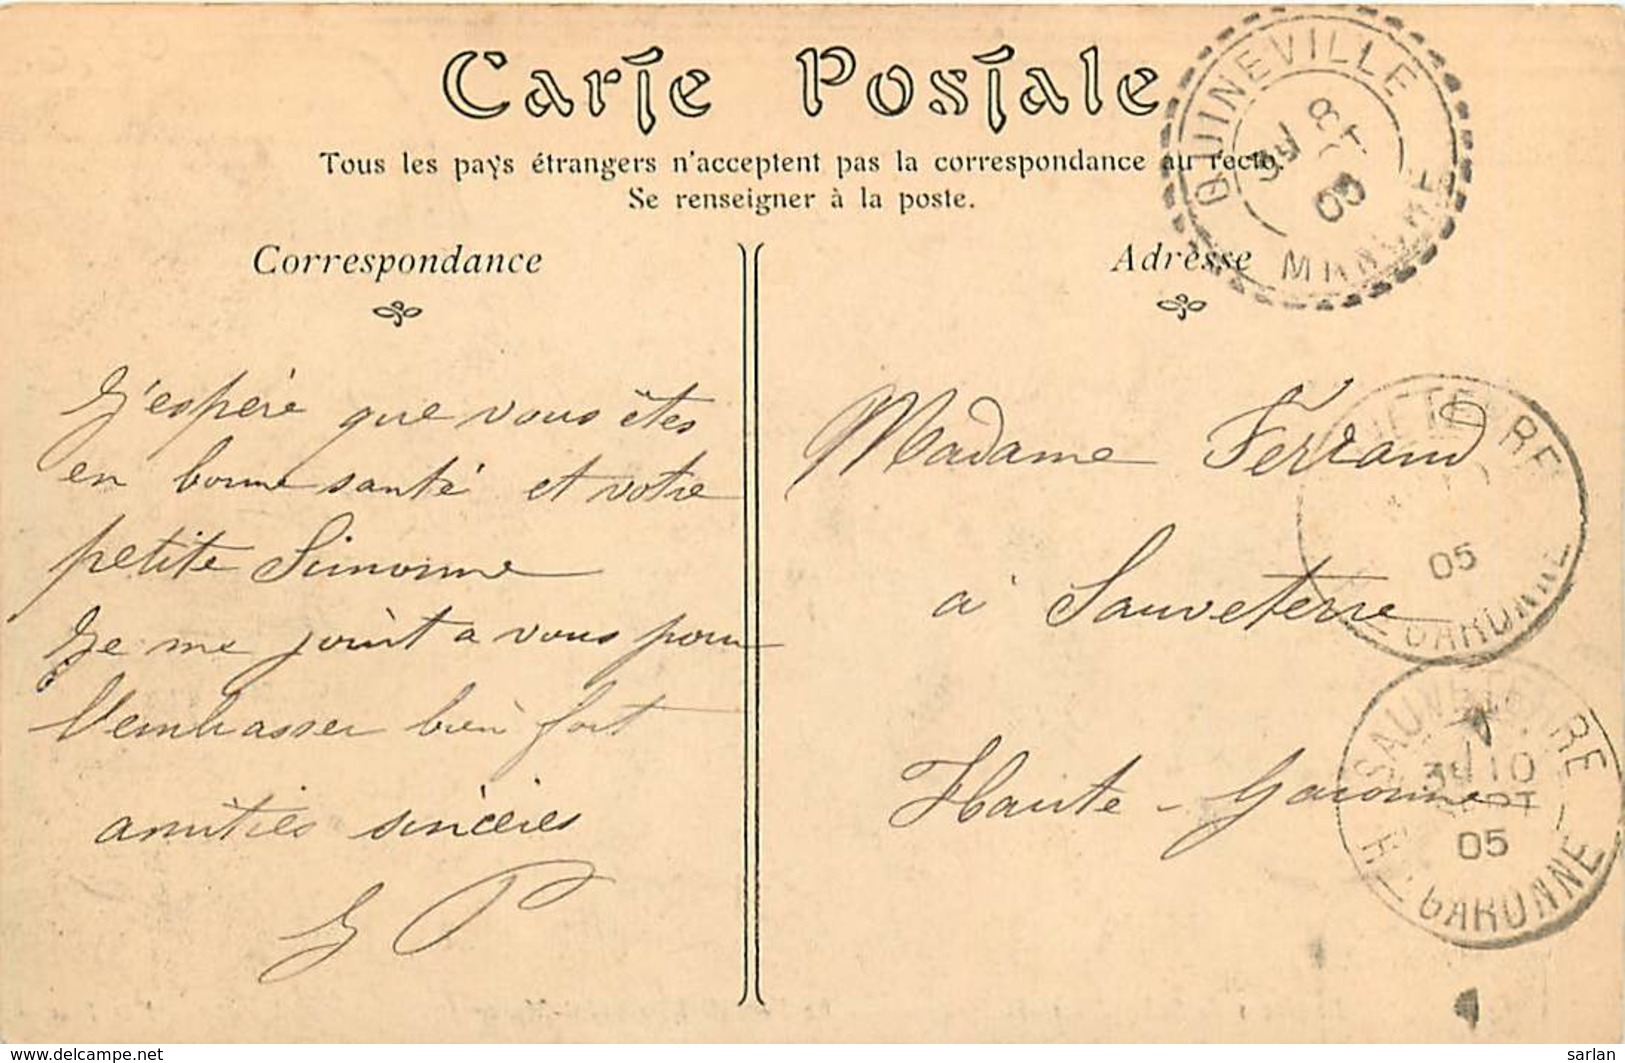 Carte Postale
Tous les pays étrangers n'acceptent pas la correspondance au recto.
Se renseigner à la poste.
QUINEVILLE
8
05
MANCHE
Correspondance
Adresse
J'espére que vous êtes
en bonne santé et votre
petite Simonne
Je me joint a vous pour
l'embrasser bien fort
amitiés sincères
Madame Ferrand
à Sauveterre
Haute-Garonne
05
GARONNE
SAUVETERRE
05
H.-GARONNE
www.delcampe.net
sarlan